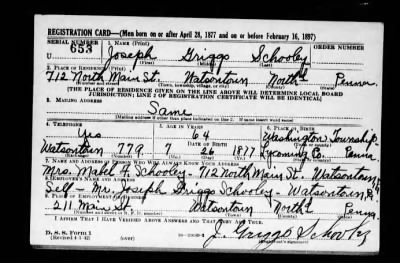 REGISTRATION CARD—(Men born on or after April 28, 1877 and on or before February 16, 1897)
SERIAL NUMBER 1. NAME (Print) ORDER NUMBER
U 653 Joseph Griggs Schooley
2. PLACE OF RESIDENCE (Print)
712 North Main St. Watsontown North'd Penna.
(Town, township, village, or city)
[THE PLACE OF RESIDENCE GIVEN ON THE LINE ABOVE WILL DETERMINE LOCAL BOARD
JURISDICTION; LINE 2 OF REGISTRATION CERTIFICATE WILL BE IDENTICAL]
3. MAILING ADDRESS
Same
[Mailing address if other than place indicated on line 2. If same insert word same]
4. TELEPHONE 5. AGE IN YEARS 6. PLACE OF BIRTH
Yes 64 Washington Township
DATE OF BIRTH
Watsontown 779 7 26 1877 Lycoming Co. Penna
7. NAME AND ADDRESS OF PERSON WHO WILL ALWAYS KNOW YOUR ADDRESS
Mrs. Mabel F. Schooley - 712 North Main St. Watsontown, Pa
8. EMPLOYER'S NAME AND ADDRESS
Self - Mr. Joseph Griggs Schooley - Watsontown, Pa
9. PLACE OF EMPLOYMENT OR BUSINESS
211 Main St. Watsontown North'd Penna.
I AFFIRM THAT I HAVE VERIFIED ABOVE ANSWERS AND THAT THEY ARE TRUE.
D. S. S. Form 1
(Revised 4-1-42) (over) J. Griggs Schooley
(Registrant's signature)